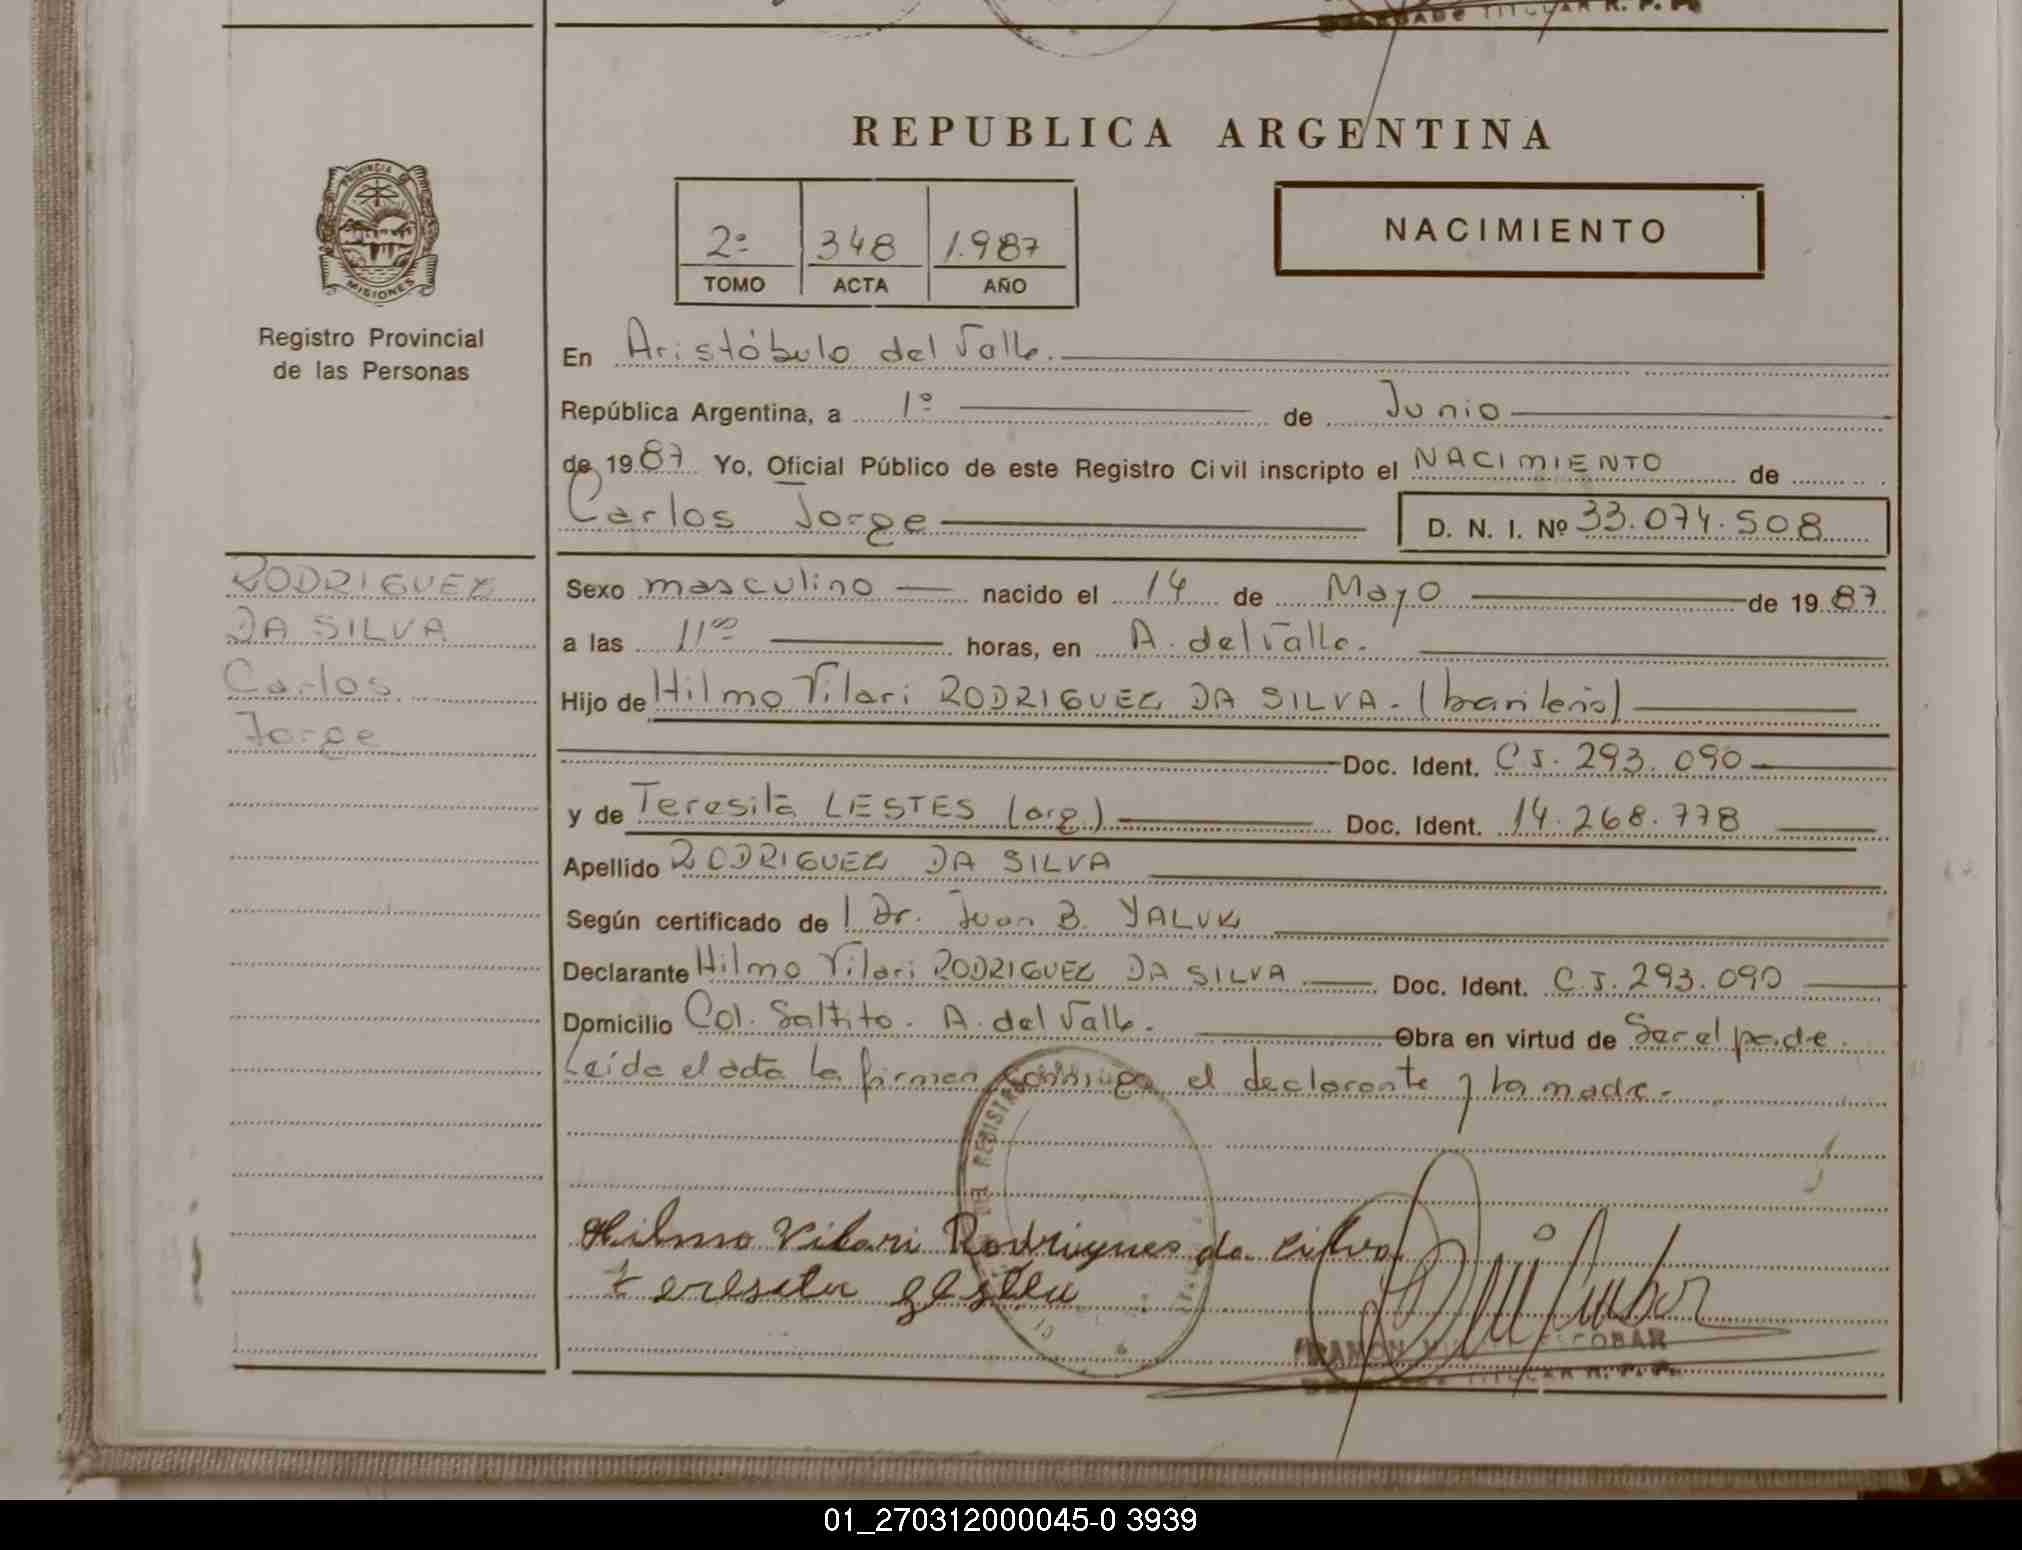 REPUBLICA ARGENTINA
PROVINCIA DE
MISIONES
Registro Provincial
de las Personas
2º 348 1.987
TOMO ACTA AÑO
NACIMIENTO
En Aristóbulo del Valle.
República Argentina, a 1º de Junio
de 1987 Yo, Oficial Público de este Registro Civil inscripto el NACIMIENTO de
Carlos Jorge D. N. I. Nº 33.074.508
RODRIGUEZ
DA SILVA
Carlos
Jorge
Sexo masculino nacido el 14 de Mayo de 1987
a las 11 horas, en A. del Valle.
Hijo de Hilmo Vilari RODRIGUEZ DA SILVA. (brasileño)
Doc. Ident. C I. 293.090
y de Teresita LESTES (arg.) Doc. Ident. 14.268.778
Apellido RODRIGUEZ DA SILVA
Según certificado de l Dr. Juan B. YALUK
Declarante Hilmo Vilari RODRIGUEZ DA SILVA Doc. Ident. C.I. 293.090
Domicilio Col. Saltito. A. del Valle. Obra en virtud de Ser el padre.
Leída el acta la firman conmigo el declarante y la madre.
DEL REGISTRO
Hilmo Vilari Rodrigues da silva
RAMON ESCOBAR
TITULAR R. P. P.
01_270312000045-0 3939